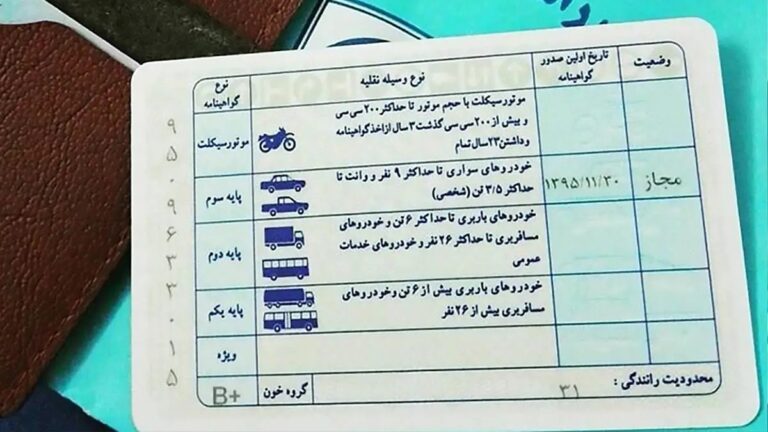 وضعیت
تاریخ اولین صدور
گواهینامه
نوع وسیله نقلیه
نوع
گواهینامه
موتورسیکلت با حجم موتور تا حداکثر ۲۰۰ سی سی
و بیش از ۲۰۰ سی سی گذشت ۳ سال از اخذ گواهینامه
و داشتن ۲۳ سال تمام
موتورسیکلت
مجاز
۱۳۹۵/۱۱/۳۰
خودروهای سواری تا حداکثر ۹ نفر و وانت تا
حداکثر ۳/۵ تن (شخصی)
پایه سوم
خودروهای باربری تا حداکثر ۶ تن و خودروهای
مسافربری تا حداکثر ۲۶ نفر و خودروهای خدمات
عمومی
پایه دوم
خودروهای باربری بیش از ۶ تن و خودروهای
مسافربری بیش از ۲۶ نفر
پایه یکم
ویژه
محدودیت رانندگی : ۳۱
گروه خون
B+
۹۵۰۹۶۳۳۰۱۵